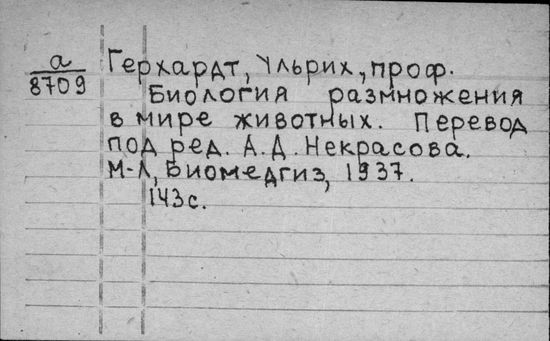 а
8709
Герхардт, Ульрих, проф.
Биология размножения
в мире животных. Перевод
под ред. А.Д. Некрасова.
М-Л, Биомедгиз, 1937.
143с.